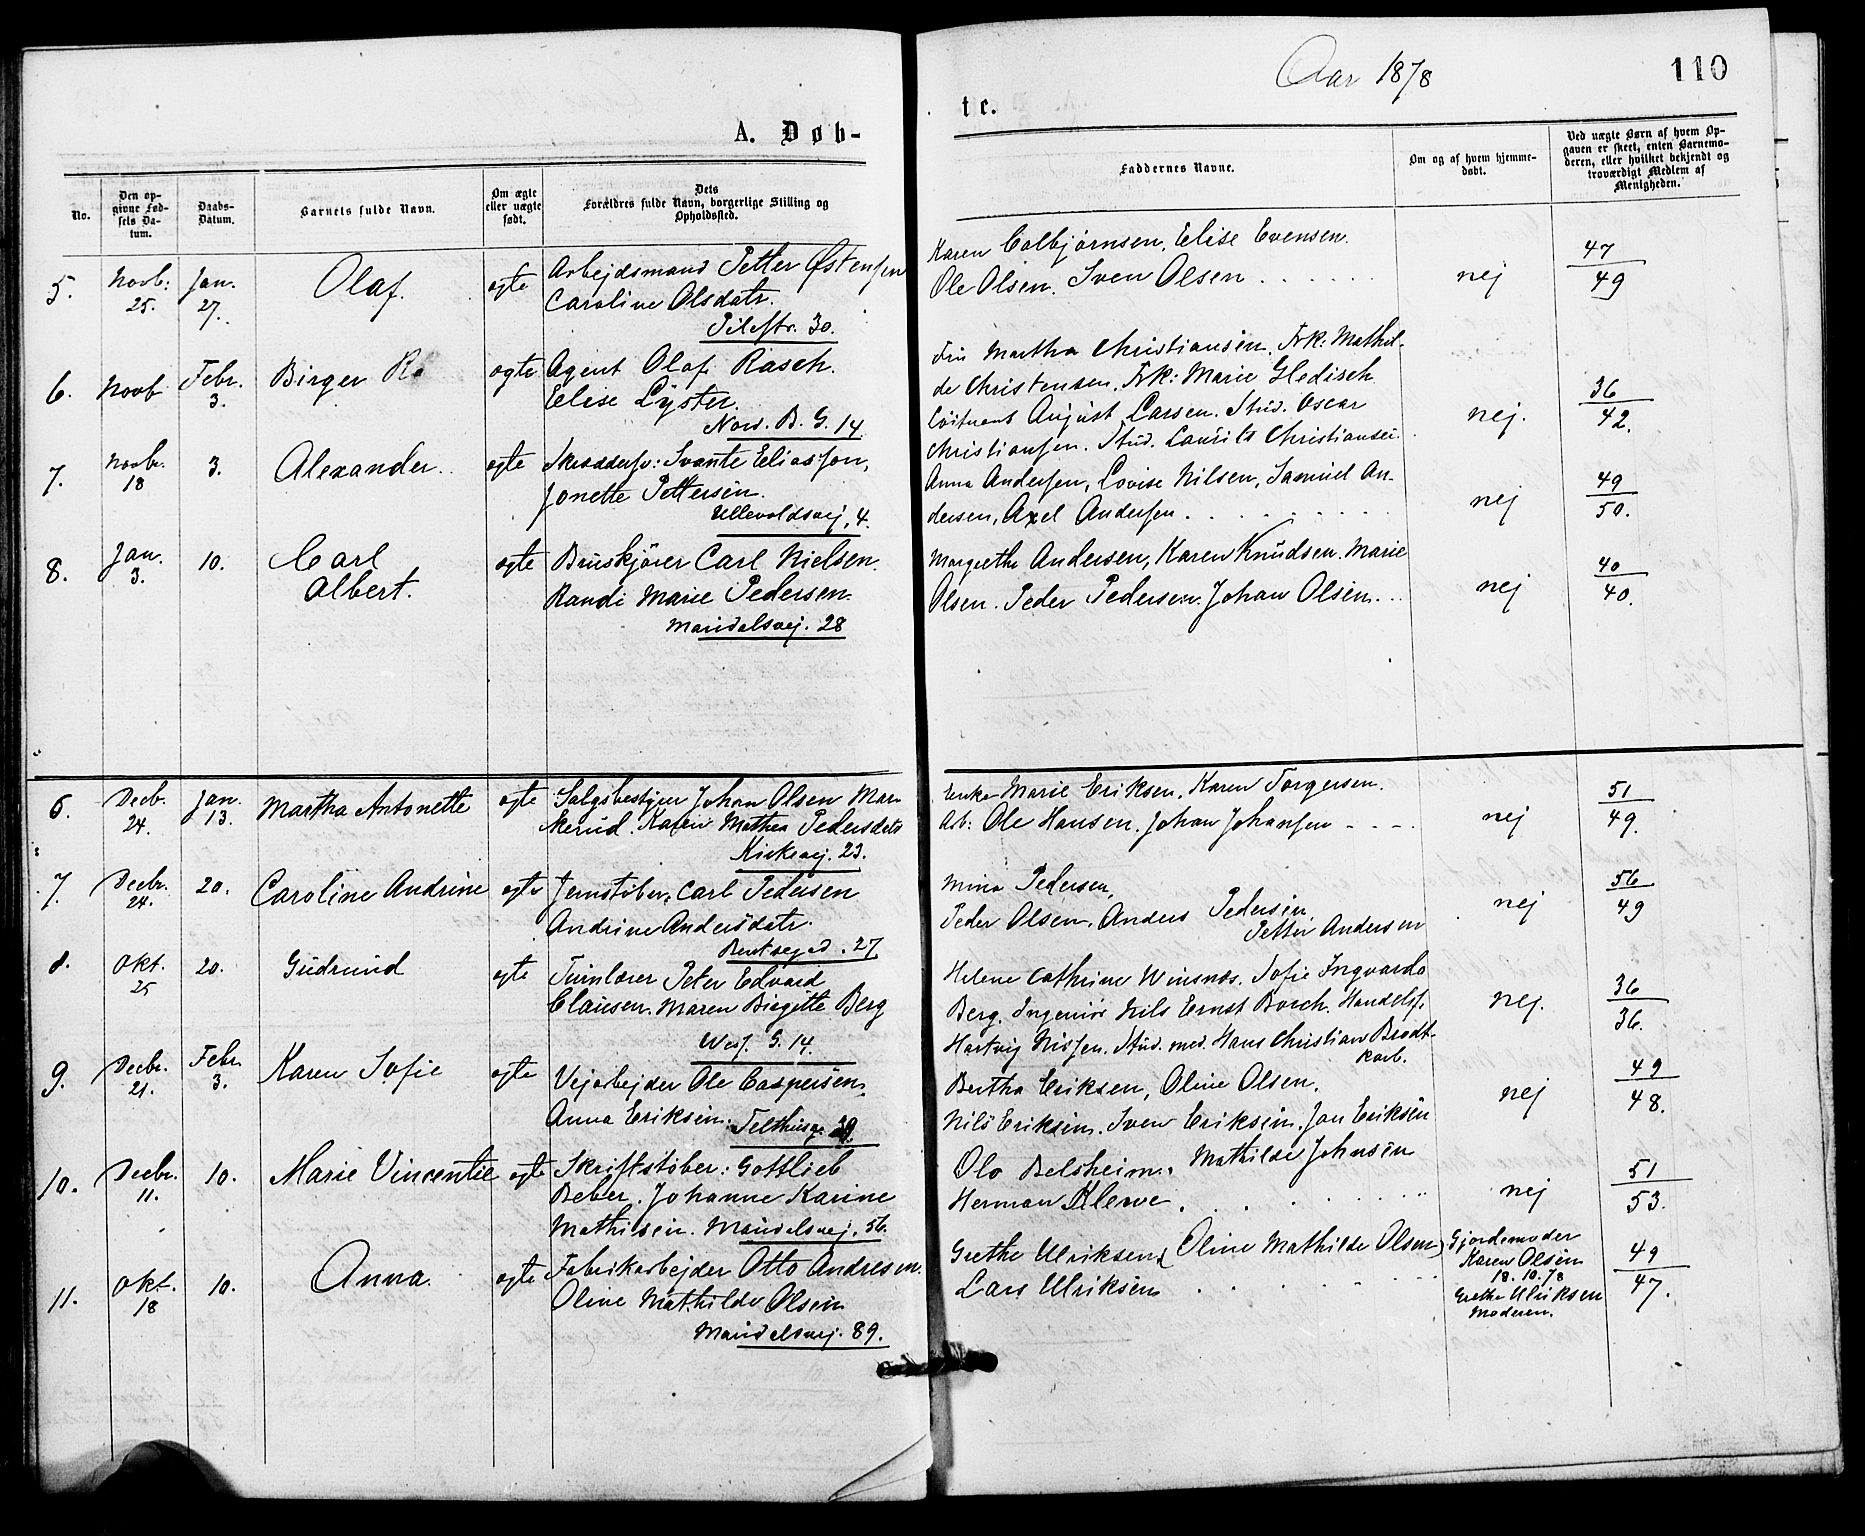 Aar 1878
110
A. Døb-
te.
No.
Den op-
givne Fød-
sels Da-
tum.
Daabs-
Datum.
Barnets fulde Navn.
Om ægte
eller uægte
født.
Dets
Forældres fulde Navn, borgerlige Stilling og
Opholdssted.
Faddernes Navne.
Om og af hvem hjemme-
døbt.
Ved uægte Børn af hvem Op-
gaven er skeet, enten Barnemo-
deren, eller hvilket bekjendt og
troværdigt Medlem af
Menigheden.
5. Novb. 25. Jan. 27. Olaf. ægte
Arbejdsmand Petter Østensen
Caroline Olsdatr.
Pilestr. 30.
Karen Colbjørnsen, Elise Evensen.
Ole Olsen. Sven Olsen
nej
47
49
6. Novb Febr. 3. Birger ægte
Agent Olaf Rasch.
Elise Lyster.
Nord. B. G. 14.
Fru Martha Christiansen. Frk: Mathil-
de Christensen. Frk: Marie Gledisch
Løitnant August Larsen. Stud. Oscar
Christiansen. Stud. Laurits Christiansen.
nej.
36
42.
7. Novbr. 18 3. Alexander. ægte
Skræddersv: Svante Eliasson,
Jonette Pettersen.
Ullevoldsvej. 4.
Anna Andersen, Lovise Nilsen, Samuel An-
dersen, Axel Andersen.
nej
49
50.
8. Jan. 3. 10. Carl
Albert. ægte
Bruskjører Carl Nielsen.
Randi Marie Pedersen.
Maridalsvej. 28
Margrethe Andersen, Karen Knudsen. Marie
Olsen. Peder Pedersen. Johan Olsen.
nej
40
40.
6. Decb. 24. Jan. 13. Martha Antonette ægte
Salgsbestyrer Johan Olsen Mar-
kerud. Karen Mathea Pedersdatr
Kirkevej. 23.
Enke Marie Eriksen. Karen Torgersen.
Arb: Ole Hansen. Johan Johansen
nej
51
49.
7. Decbr. 24. 20. Caroline Andrine ægte
Jernstøber. Carl Pedersen
Andrine Andersdatr.
Bentsegad. 27.
Mina Pedersen,
Peder Olsen. Anders Pedersen,
Petter Andersen
nej
56
49
8. Okt. 25 20. Gudmund ægte
Turnlærer Peter Edvard
Clausen. Maren Birgitte Berg
Wess. G. 14.
Helene Cathrine Winsnæs. Sofie Ingvarda
Berg. Ingeniør Nils Ernst Borch. Handelsf.
Hartvig Nissen. Stud. med. Hans Christian Brodt-
korb.
nej.
36
36.
9. Decbr. 21. Febr. 3. Karen Sofie ægte
Vejarbejder Ole Caspersen,
Anna Eriksen. Telthusg.
Bertha Eriksen, Oline Olsen,
Nils Eriksen. Sven Eriksen. Jon Eriksen
nej
49
48.
10. Decbr. 11. 10. Marie Vincentie ægte
Skriftstøber: Gottlieb
Beber. Johanne Karine
Mathisen. Maridalsvej. 56.
Ole Belsheim. Mathilde Johnsen
Herman Klewe.
nej
51
53.
11. Okt. 18 10. Anna. ægte
Fabrikarbejder Otto Andresen.
Oline Mathilde Olsen
Maridalsvej. 89.
Grethe Ulriksen (Oline Mathilde Olsen)
Lars Ulriksen
Gjordemoder
Karen Olsen
18. 10. 78
Grethe Ulriksen
Moderen.
49
47.